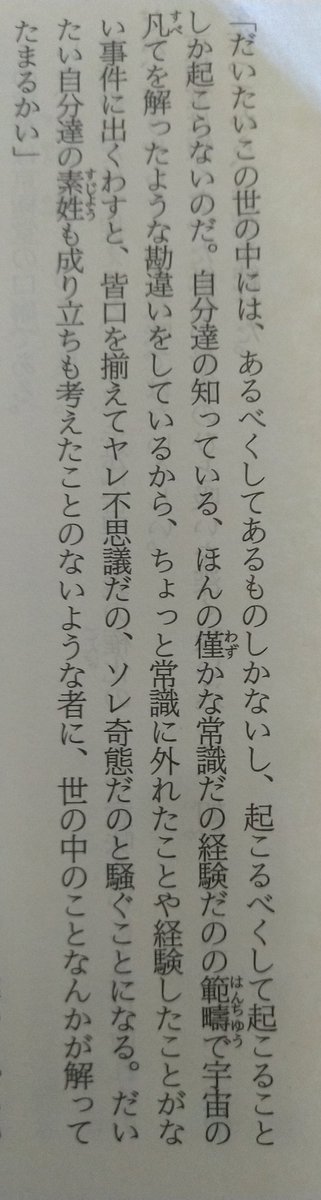 「だいたいこの世の中には、あるべくしてあるものしかないし、起こるべくして起こること
しか起こらないのだ。自分達の知っている、ほんの僅かな常識だの経験だのの範疇で宇宙の
凡てを解ったような勘違いをしているから、ちょっと常識に外れたことや経験したことがな
い事件に出くわすと、皆口を揃えてヤレ不思議だの、ソレ奇態だのと騒ぐことになる。だい
たい自分達の素姓も成り立ちも考えたことのないような者に、世の中のことなんかが解って
たまるかい」